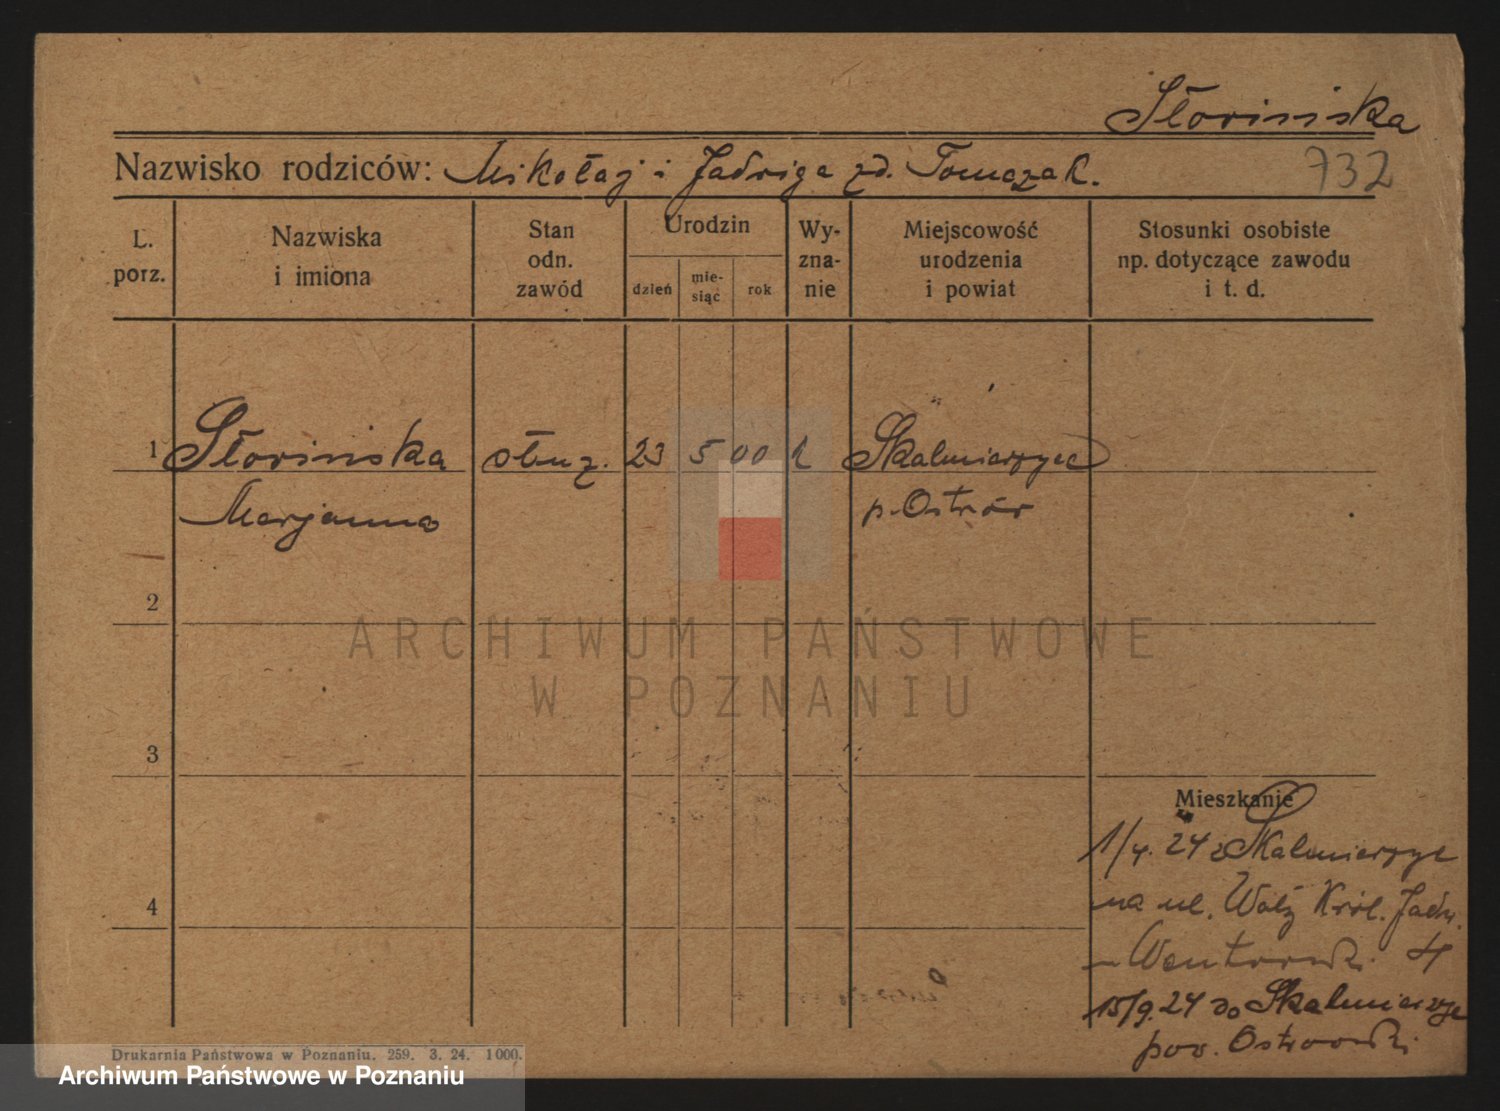 Słowińska
Nazwisko rodziców: Mikołaj i Jadwiga zd. Tomczak.
732
L. porz.
Nazwiska i imiona
Stan odn. zawód
Urodzin
dzień
mie-
siąc
rok
Wy-
zna-
nie
Miejscowość urodzenia i powiat
Stosunki osobiste np. dotyczące zawodu i t. d.
1 Słowińska służ. 23 5 00 k Skalmierzyce
Marjanna p. Ostrów
2
3
4
Mieszkanie
1/4. 24 z Skalmierzyc
na ul. Wały Król. Jadw.
4
15/9. 24 do Skalmierzyc
pow. Ostrowski
Drukarnia Państwowa w Poznaniu. 259. 3. 24. 1000.
ARCHIWUM PAŃSTWOWE
W POZNANIU
Archiwum Państwowe w Poznaniu